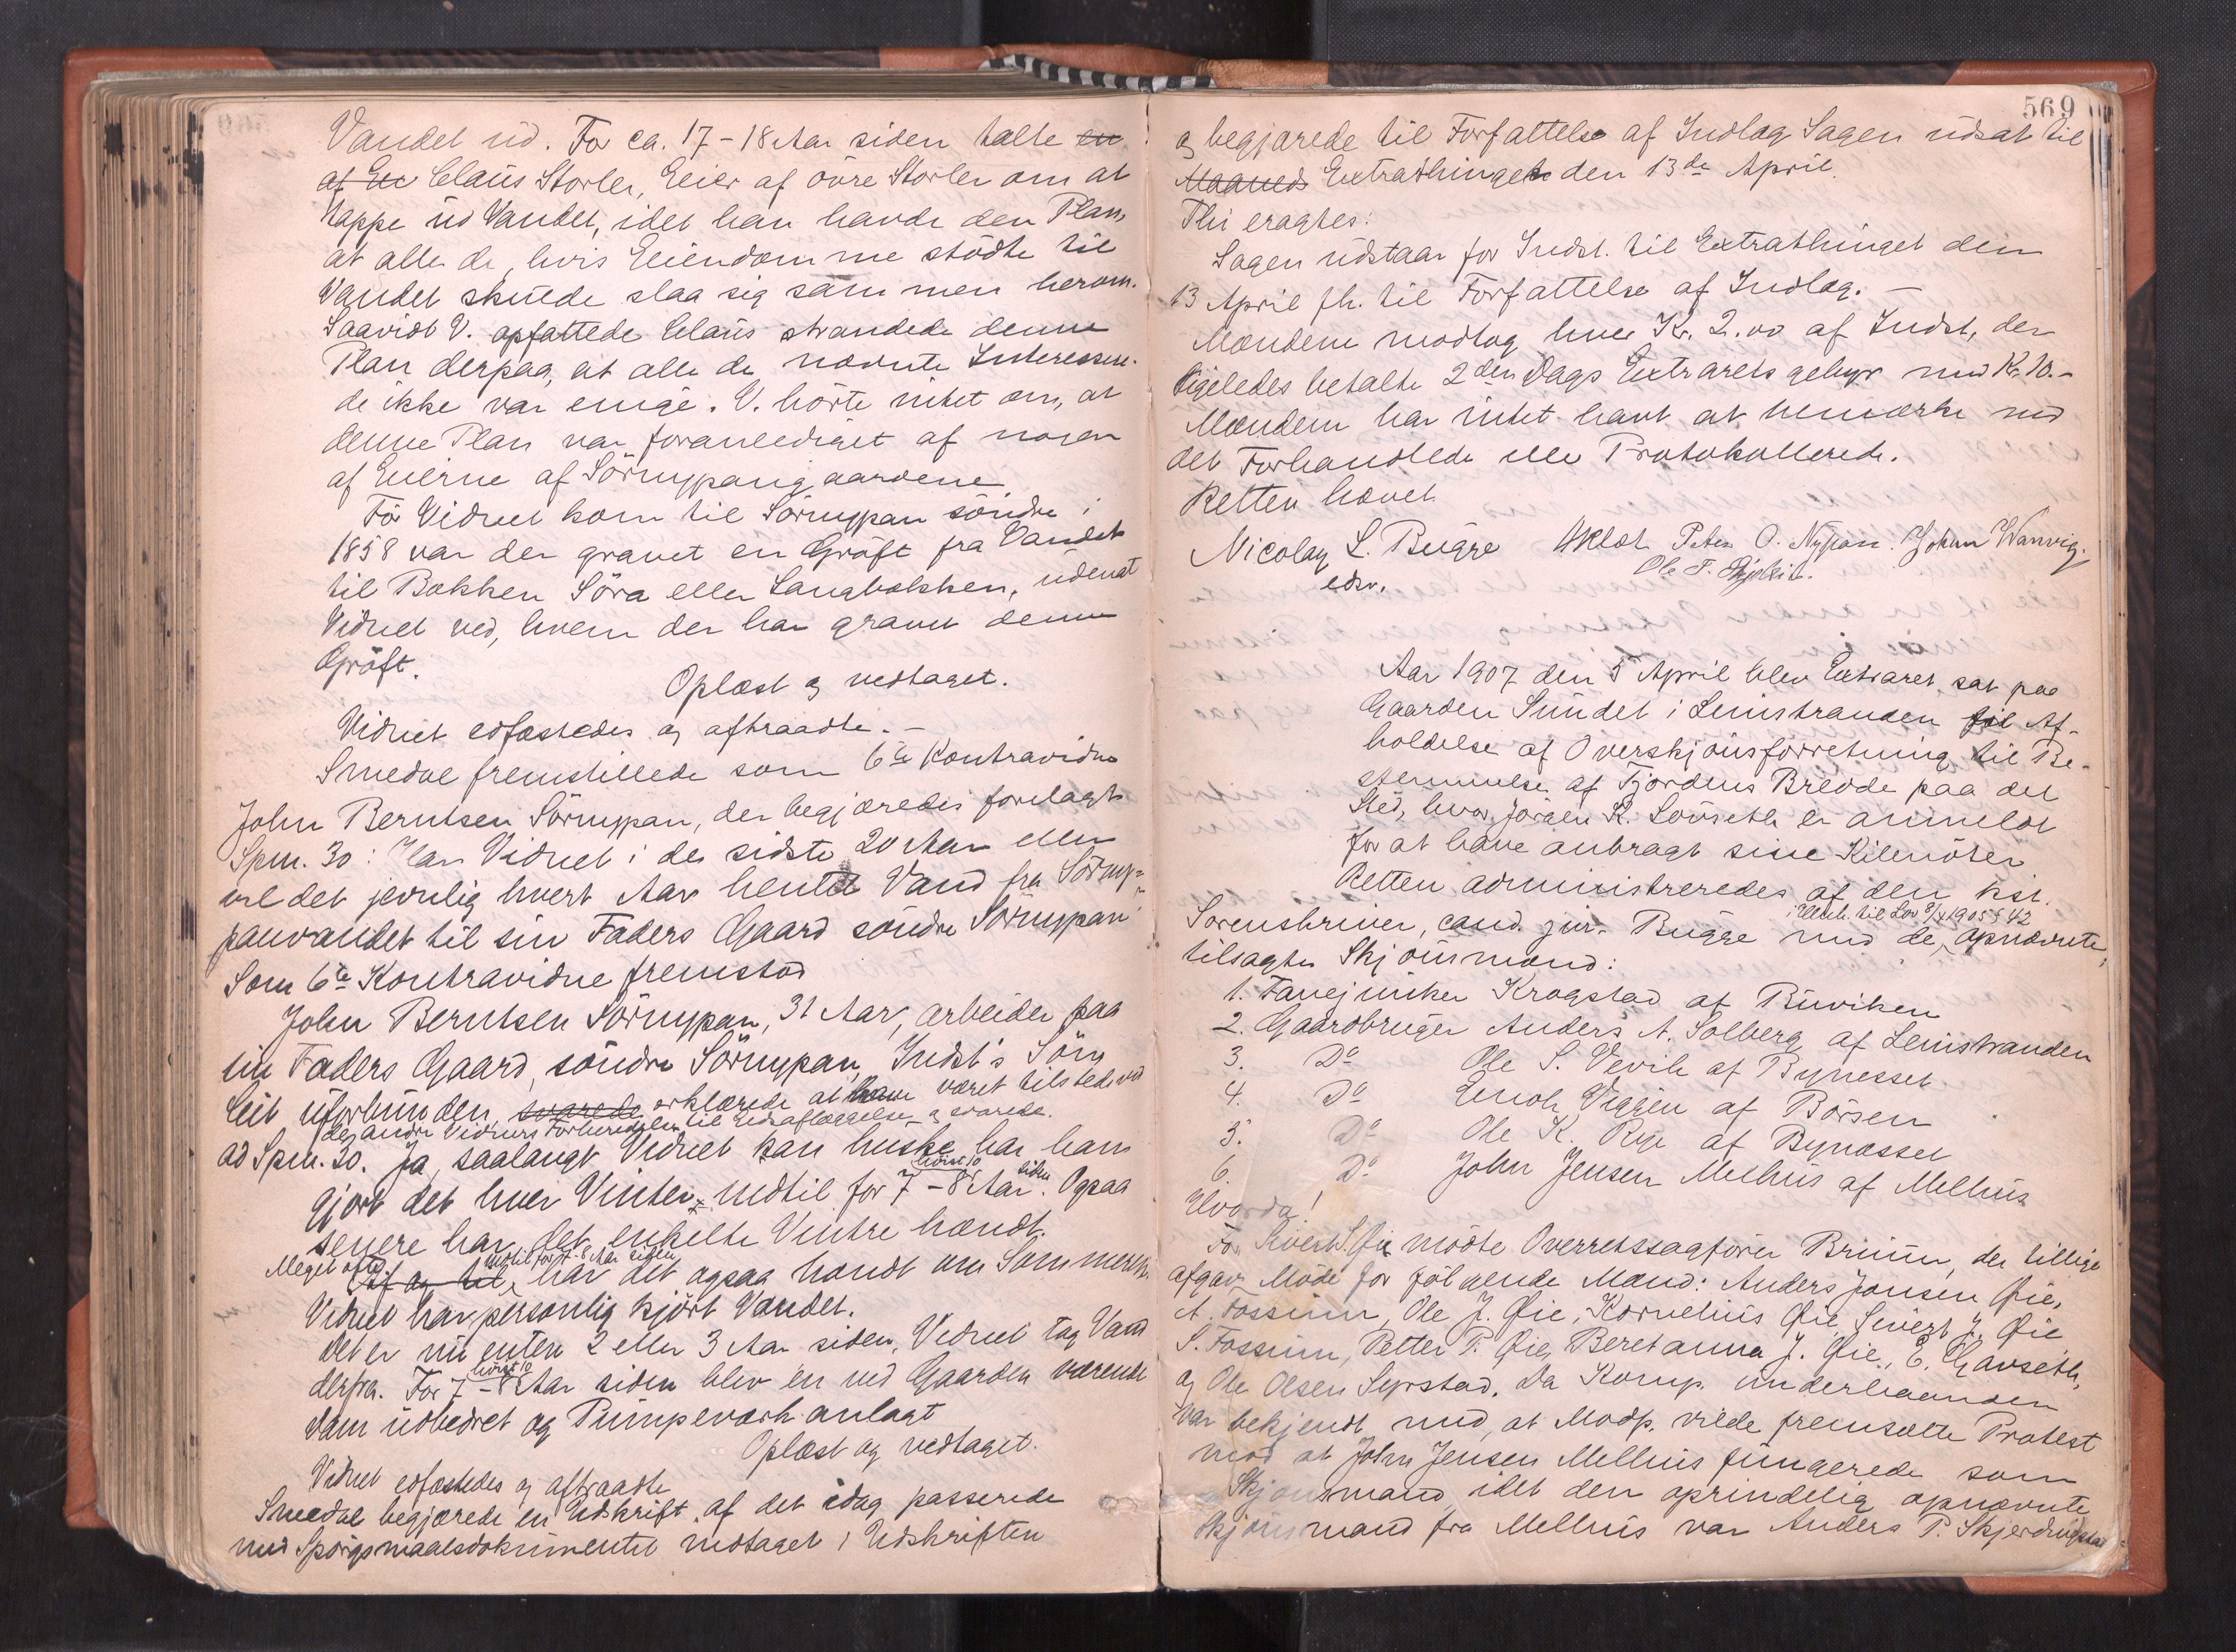 Vandet ud. For ca. 17-18 Aar siden talte en
af Ei Claus Storler, Eier af övre Storler om at
tappe ud Vandet, idet han havde den Plan,
at alle de, hvis Eiendomme stödte til
Vandet skulde slaa sig sammen herom.
Saavidt V. opfattede Claus strandede denne
Plan derpaa, at alle de nævnte Interessere-
de ikke var enige. V. hörte intet om, at
denne Plan var foranlediget af nogen
af Eierne af Sörnypangaardene.
För Vidnet kom til Sörnypan söndre i
1858 var der gravet en Gröft fra Vandet
til Bækken Söra eller Langbækken, udenat
Vidnet ved, hvem der har gravet denne
Gröft.
Oplæst og vedtaget.
Vidnet edfæstedes og aftraadte.-
Smedal fremstillede som 6te Kontravidne
John Berntsen Sörnypan, der begjæredes forelagt
Spm. 30: Har Vidnet i de sidste 20 Aar eller
vel det jevnlig hvert Aar hentet Vand fra Sörny-
panvandet til sin Faders Gaard söndre Sörnypan
Som 6te Kontravidne fremstod
John Berntsen Sörnypan, 31 Aar, arbeider paa
sin Faders Gaard, söndre Sörnypan, Indst's Sön
Eit uforbunden, svarede erklærede at have været tilstede ved
de andre Vidners Forberedelse til Edsaflæggelse og svarede.
ad Spm. 30. Ja, saalangt Vidnet kan huske har han
höist 10
gjort det hver Vinter indtil for 7-8 Aar siden. Ogsaa
senere har det enkelte Vintre hændt.
Meget ofte indtil for 7-8 Aar siden
Af og til, har det ogsaa hændt om Sommeren.
Vidnet har personlig kjört Vandet.
Det er nu enten 2 eller 3 Aar siden, Vidnet tog Vand
höist 10
derfra. For 7-8 Aar siden blev en ved Gaarden værende
Dam udbedret og Pumpeværk anlagt
Oplæst og vedtaget.
Vidnet edfæstedes og aftraadte
Smedal begjærede en Udskrift af det idag passerede
med Spörgsmaalsdokumentet indtaget i Udskriften
569
og begjærede til Forfattelse af Indlæg Sagen udsat til
Maaneds Extrathinget den 13de April.
Thi eragtes:
Sagen udstaar for Indst. til Extrathinget den
13 April fh. til Forfattelse af Indlæg.-
Mændene modtog hver Kr. 2.00 af Indst, der
ligeledes betalte 2den Dags Extraretsgebyr med Kr. 10.-
Mændene har intet havt at bemærke ved
det Forhandlede eller Protokollerede.
Retten hævet
Nicolay L. Bugge Peter O. Nypan. Johan Wanvig.
edsv. Ole T.
Aar 1907 den 5 April blev Extraret sat paa
Gaarden Sundet i Leinstranden til Af-
holdelse af Overskjönsforretning til Be-
stemmelse af Fjordens Bredde paa det
Sted, hvor Jörgen K. Lövseth er anmeldt
for at have anbragt sine Kilenöter
Retten administreredes af den kst.
i Medh. til Lov 9/6 1905 § 42
Sorenskriver, cand. jur. Bugge med de, opnævnte,
tilsagte Skjönsmænd:
1. Fanejunker Krogstad af Buviken
2. Gaardbruger Anders A. Solberg af Leinstranden
3. Do Ole S. Vevik af Bynesset
4. Do Enok Viggen af Börsen
5. Do Ole K. Rye af Bynæsset
6. Do John Jensen Melhus af Melhus
Hvorda!
For Sivert S. Öie mödte Overretssagförer Bruun, der tillige
afgav Möde for fölgende Mænd: Anders Jonsen Öie,
A. Fossum, Ole J. Öie, Kornelius Öie, Sivert J. Öie
S. Fossum, Petter P. Öie, Beretanna J. Öie, E. Gavseth,
og Ole Olsen Syrstad. Da Komp. underhaanden
var bekjendt med, at Modp. vilde fremsætte Protest
mod at John Jensen Melhus fungerede som
Skjönsmand, idet den oprindelig opnævnte
Skjönsmand fra Melhus var Anders P. Skjerdingstad